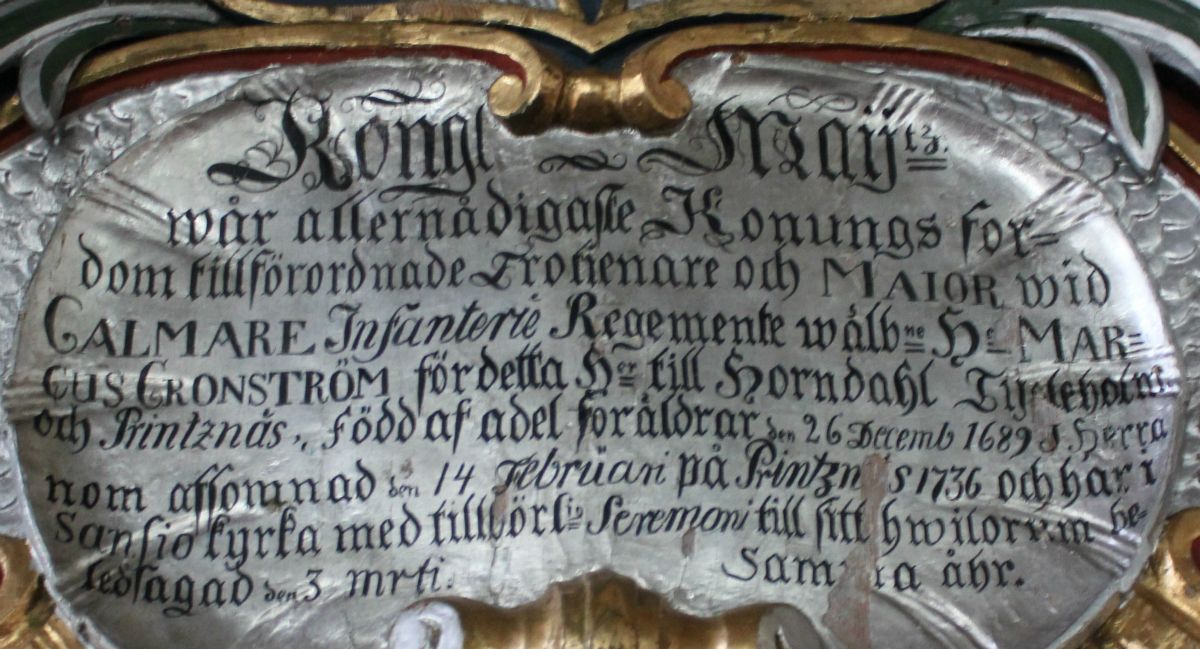 Kongl Maÿtz.
wår allernådigaste Konungs for=
dom tillförordnade Trotienare och MAIOR wid
CALMARE Infanterie Regemente wålb=ne Hr= MAR=
CUS CRONSTRÖM fördetta Hr= till Horndahl Tijreholm.
och Printznäs., född af adel foråldrar den 26 Decemb 1689 J Herra
nom assomnad den 14 Februari på Printznäs 1736 och har i
Sansio kyrka med tillbörl=ig Seremoni till sitt hwilorum be=
ledsagad den 3 mrti. Samma åhr.